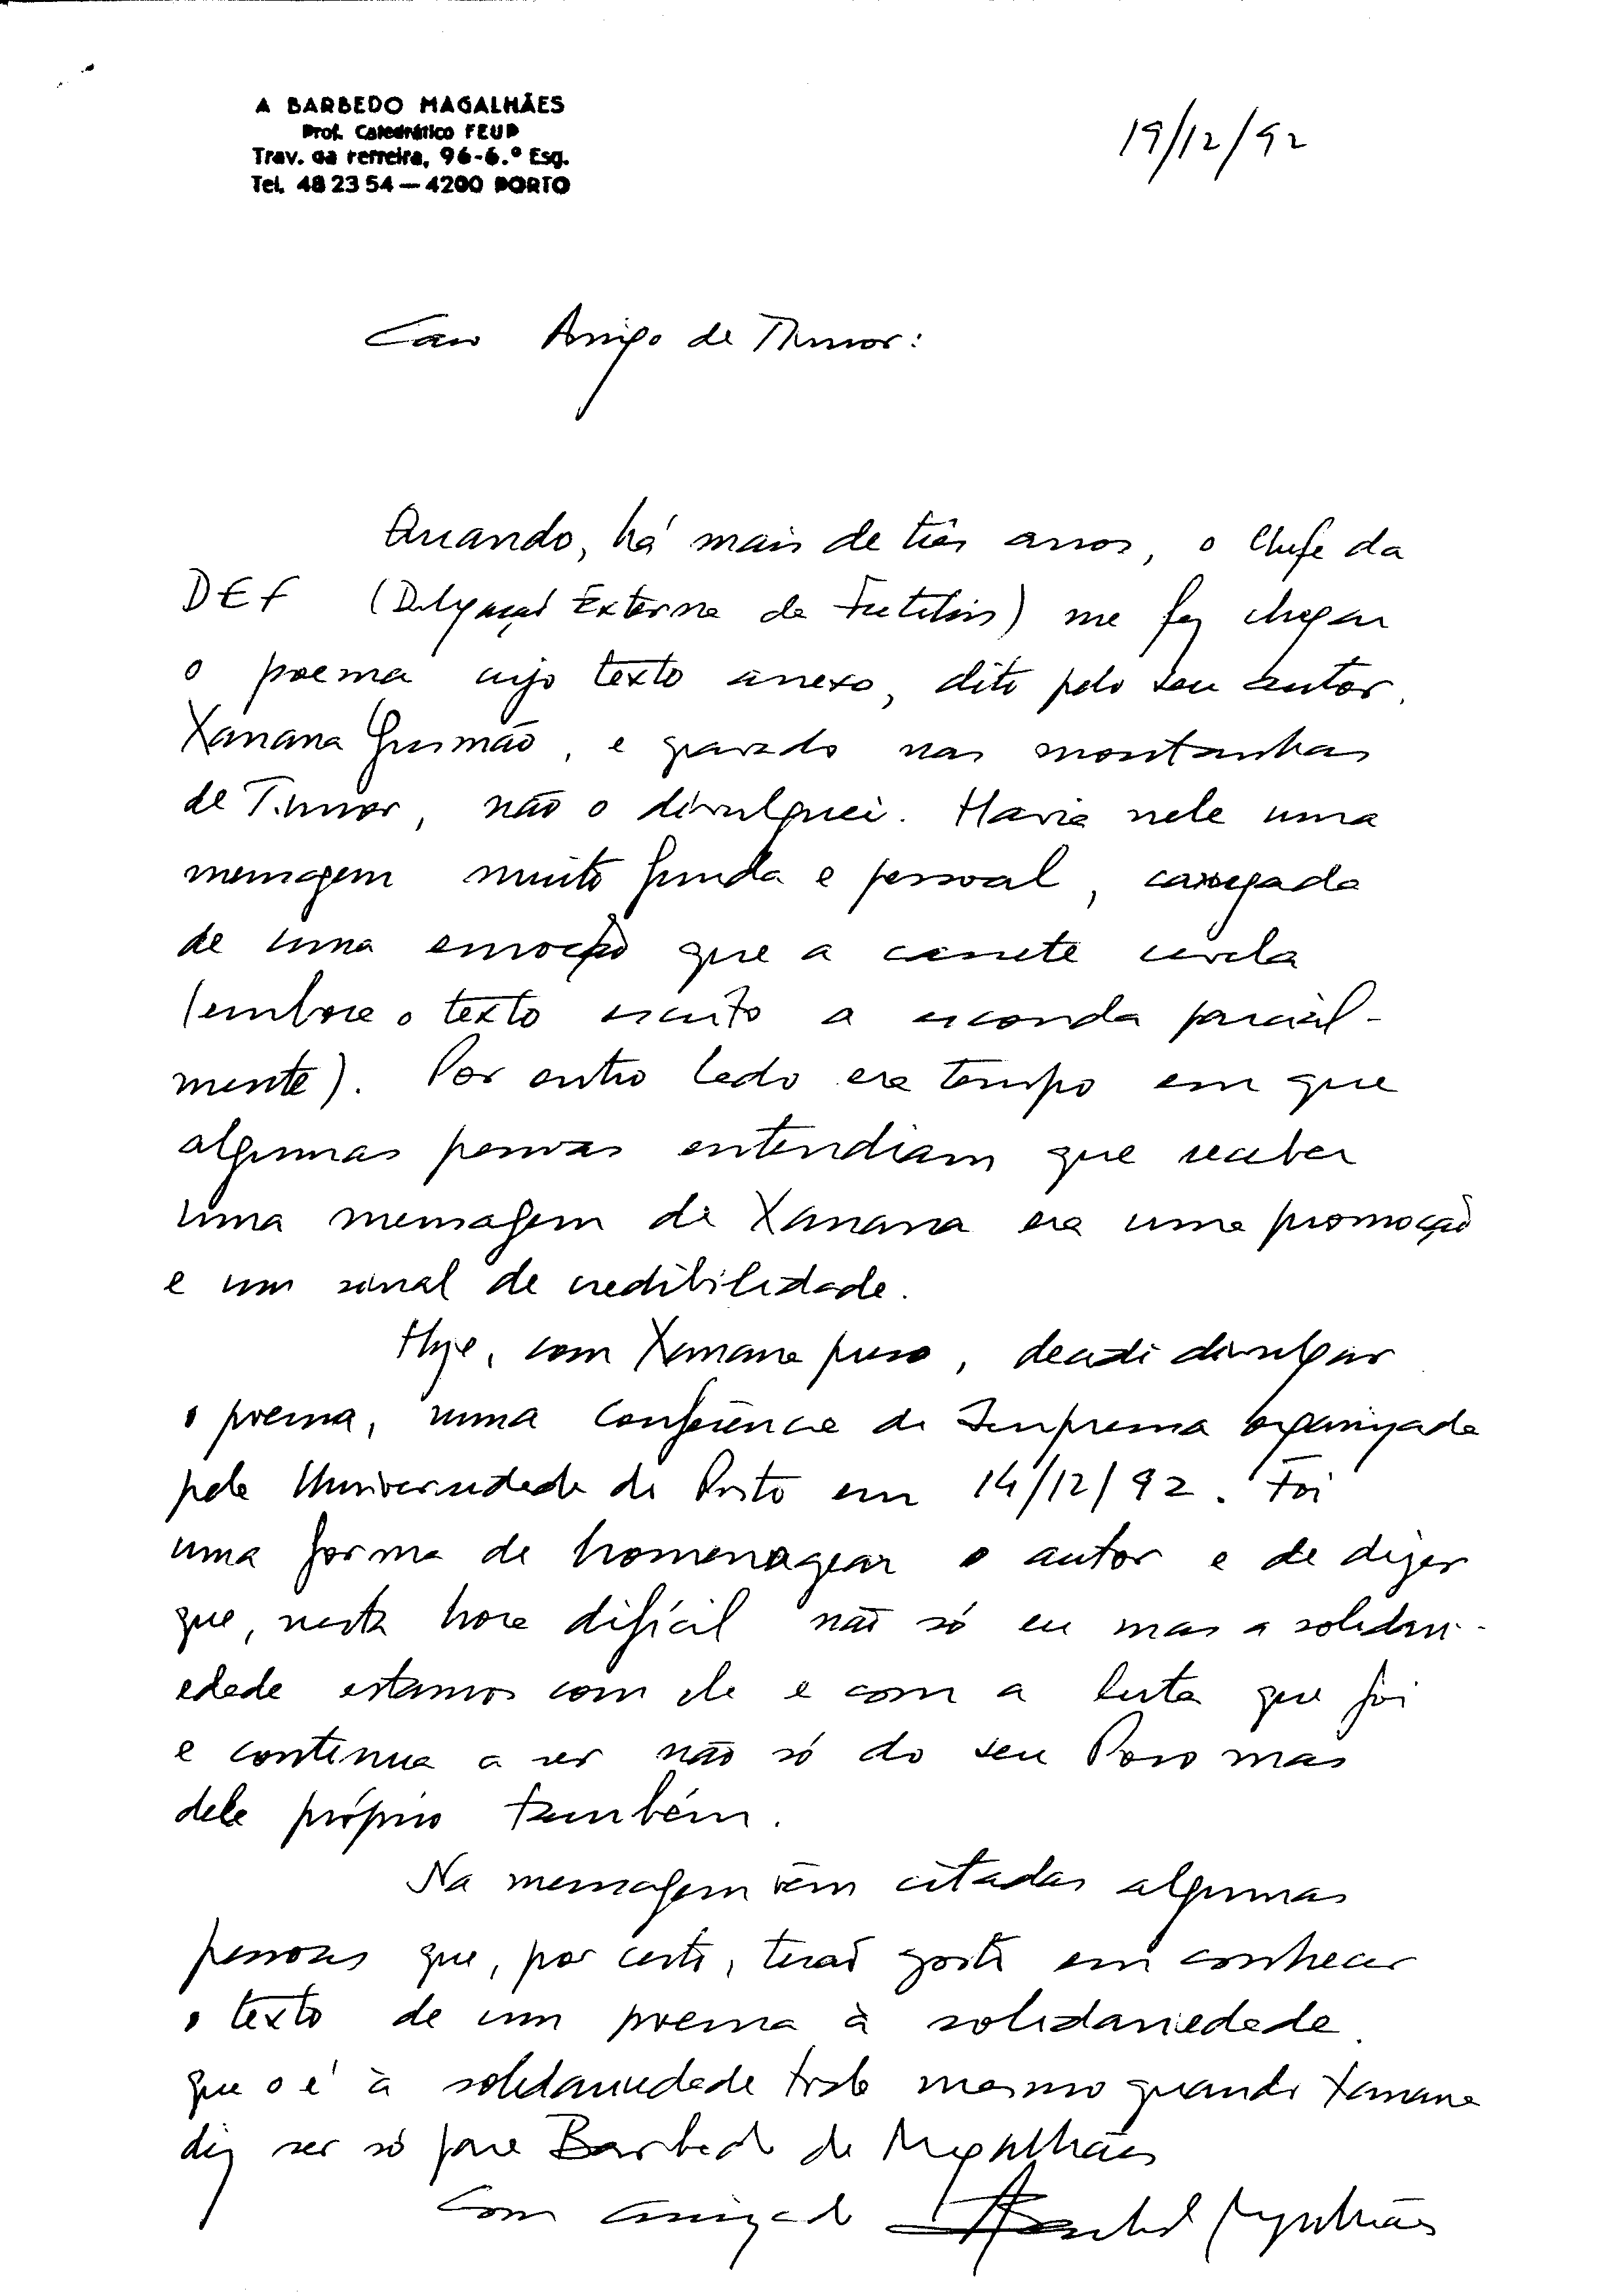 A BARBEDO MAGALHÃES
Prof. Catedrático FEUP
Trav. da Ferreira, 96-6.º Esq.
Tel. 48 23 54 — 4200 PORTO
19/12/92
Caro Amigo de Timor:
Quando, há mais de três anos, o Chefe da
DEF (Delegação Externa da Fretilin) me fez chegar
o poema cujo texto anexo, dito pelo seu autor,
Xanana Gusmão, e gravado nas montanhas
de Timor, não o divulguei. Havia nele uma
mensagem muito funda e pessoal, carregada
de uma emoção que a cassete revela
(embora o texto escrito a esconda parcial-
mente). Por outro lado era tempo em que
algumas pessoas entendiam que receber
uma mensagem de Xanana era uma promoção
e um sinal de credibilidade.
Hoje, com Xanana preso, decidi divulgar
o poema, numa Conferência de Imprensa organizada
pela Universidade do Porto em 14/12/92. Foi
uma forma de homenagear o autor e de dizer
que, nesta hora difícil não só eu mas a solidari-
edade estamos com ele e com a luta que foi
e continua a ser não só do seu Povo mas
dele próprio também.
Na mensagem vêm citadas algumas
pessoas que, por certo, terão gosto em conhecer
o texto de um poema à solidariedade.
que o é à solidariedade toda mesmo quando Xanana
diz ser só para Barbedo de Magalhães
Com amizade Barbedo Magalhães